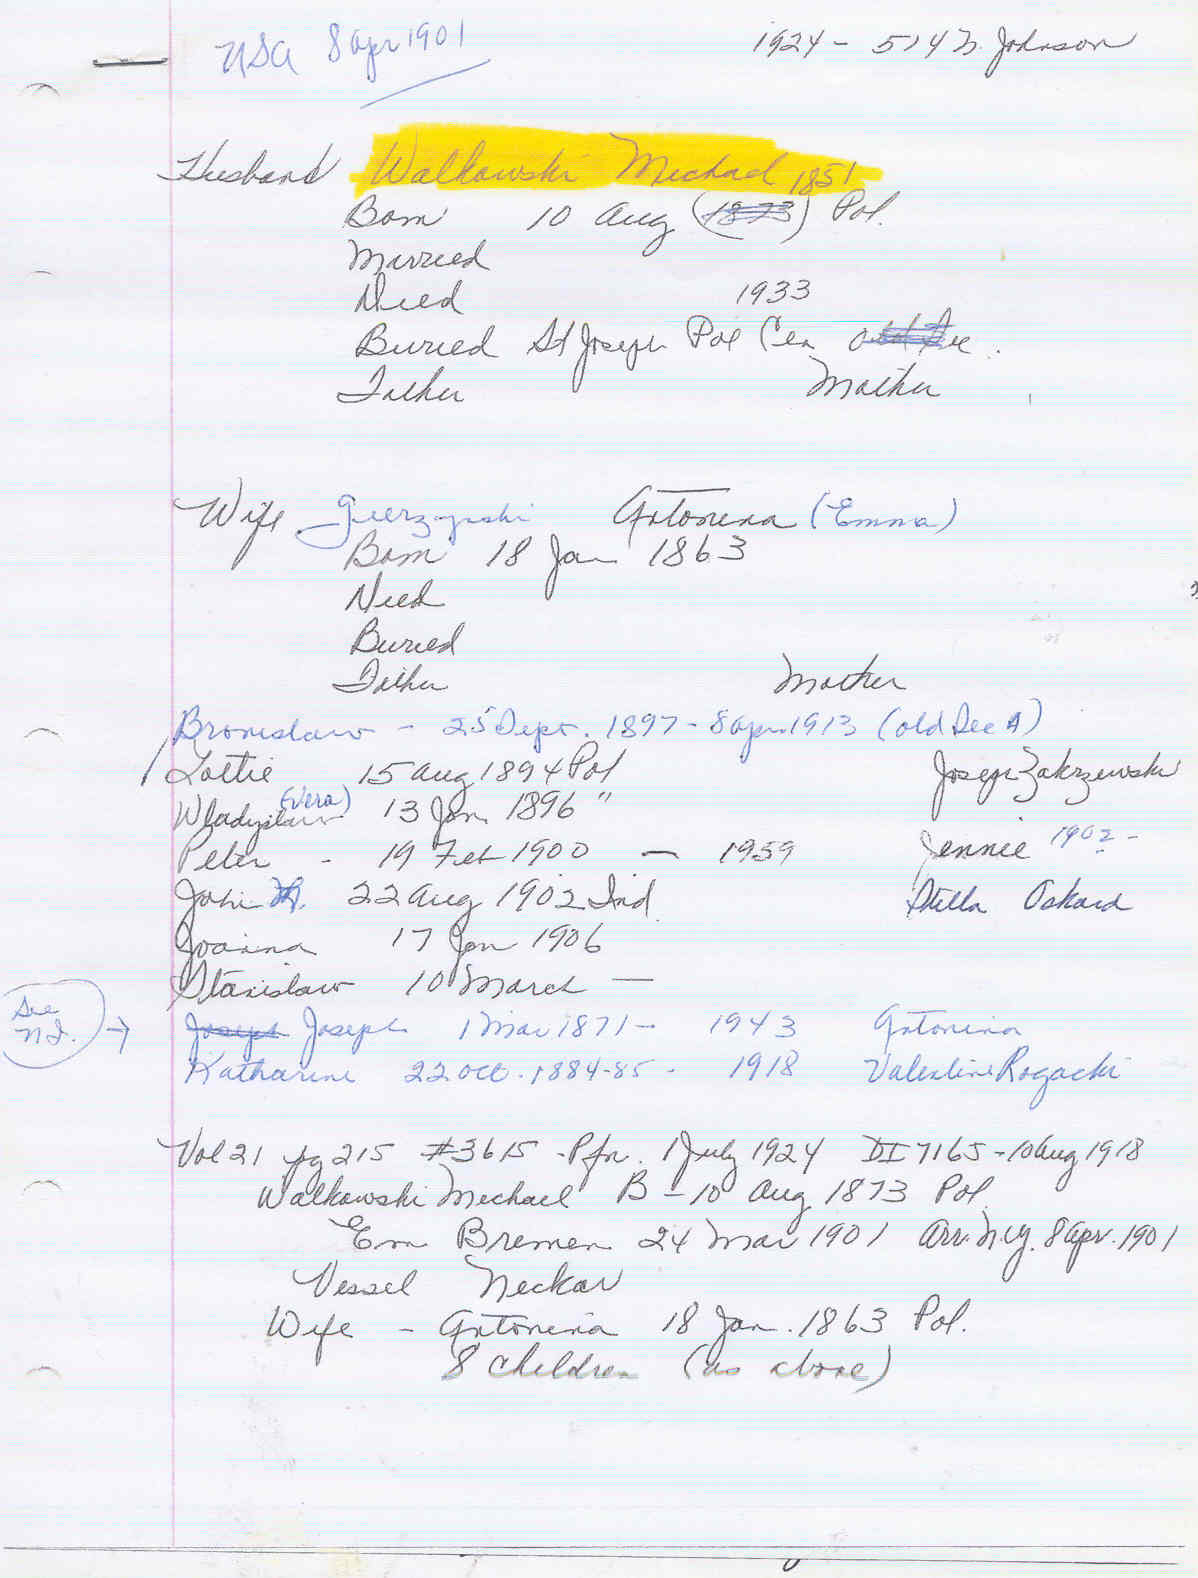 USA 8 Apr 1901
1924 - 514 N. Johnson
Husband Walkowski Michael 1851
Born 10 Aug (1873) Pol.
Married
Died 1933
Buried St Joseph Pol Cem old Sec.
Father Mother
Wife Antonina (Emma)
Born 18 Jan 1863
Died
Buried
Father Mother
Bronislaw - 25 Sept. 1897 - 8 Apr 1913 (old Sec A)
Lottie 15 Aug 1894 Pol Joseph Zakrzewski
(Vera)
Wladyslaw 13 Jan 1896 "
Peter - 19 Feb 1900 - 1959 Jennie 1902 -
John 22 Aug 1902 Ind. Stella Oskard
Joanna 17 Jan 1906
Stanislaw 10 March -
See N.I. → Joseph Joseph 1 Mar 1871 - 1943 Antonina
Katharine 22 Oct. 1884-85 - 1918 Valentine Rogacki
Vol 21 pg 215 #3615 - Ppr. 1 July 1924 DI 7165 - 10 Aug 1918
Walkowski Michael B - 10 Aug 1873 Pol.
Em Bremen 24 Mar 1901 Arr. N.Y. 8 Apr. 1901
Vessel Neckar
Wife - Antonina 18 Jan. 1863 Pol.
8 children (as above)